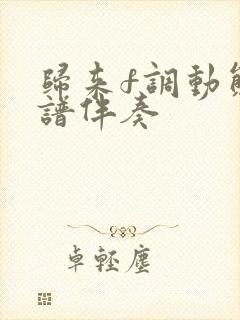 歸来f調動
譜伴奏
卓輕塵